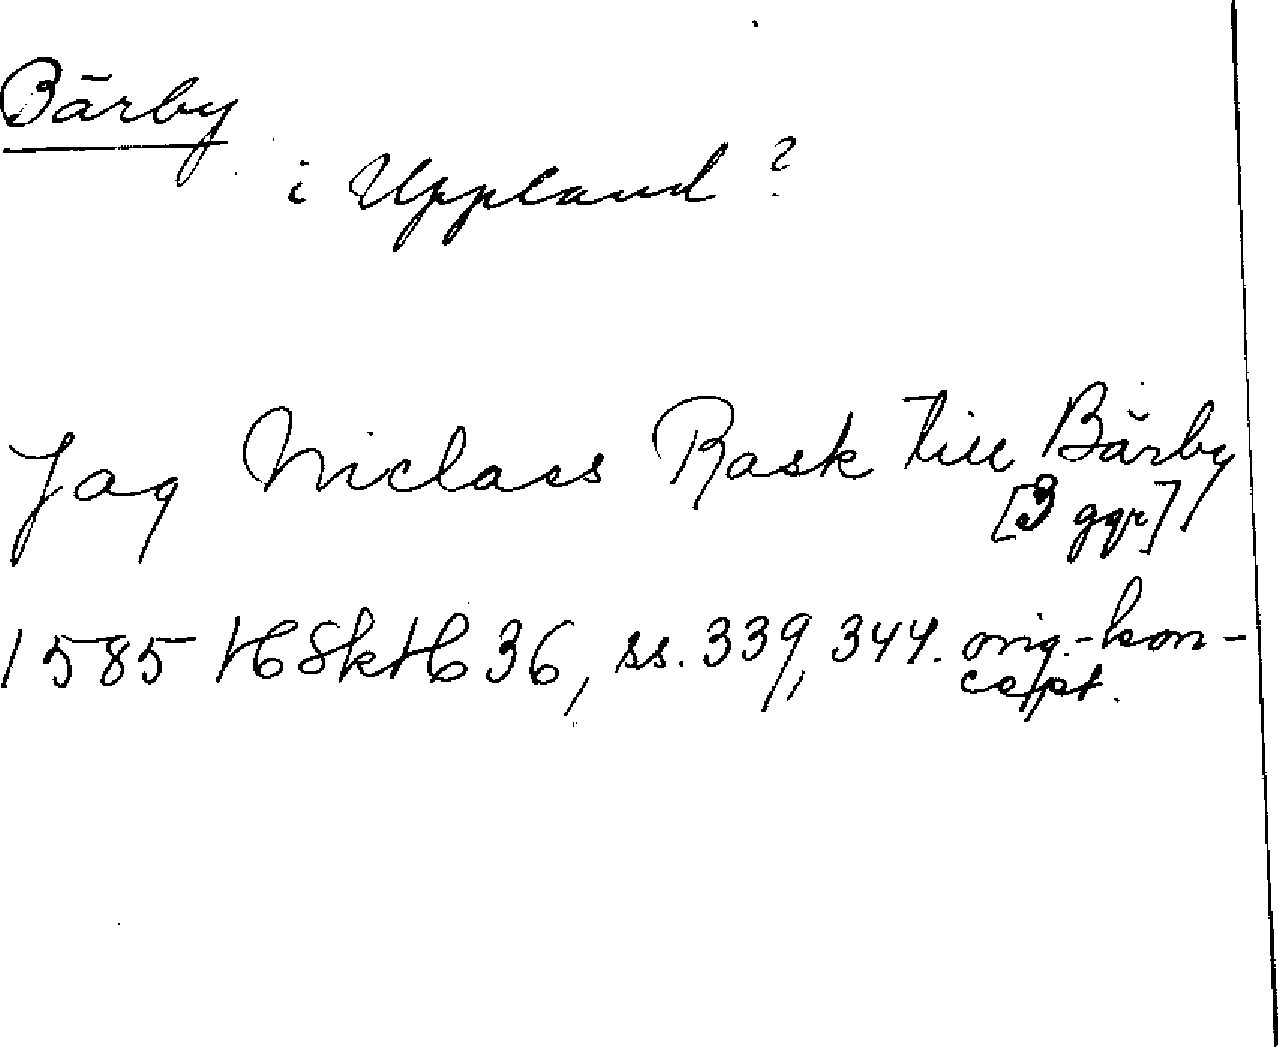 Bärby
i Uppland?
Jag Niclaes Rask till Bärby
[3 ggr]
1585 HSkH 36, ss. 339, 344. orig.-kon-
cept.